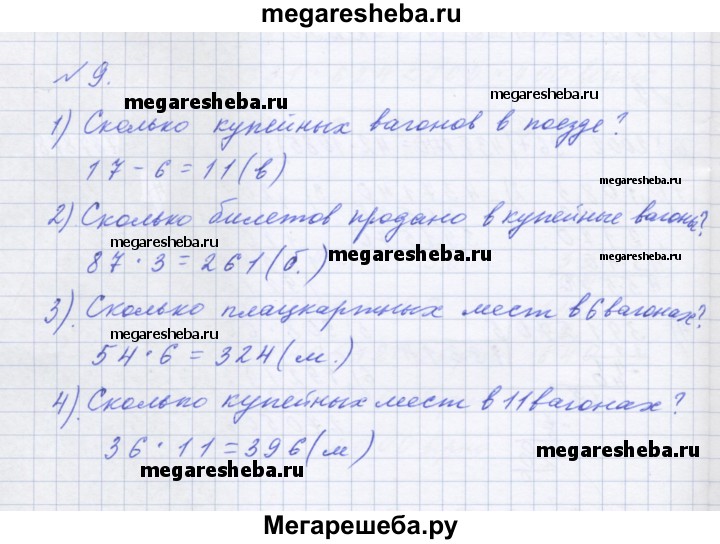 megaresheba.ru
№ 9.
megaresheba.ru
megaresheba.ru
1) Сколько купейных вагонов в поезде?
17 - 6 = 11 (в)
megaresheba.ru
2) Сколько билетов продано в купейные вагоны?
megaresheba.ru
87 · 3 = 261 (б.)
megaresheba.ru
3). Сколько плацкартных мест в 6 вагонах?
megaresheba.ru
54 · 6 = 324 (м.)
4). Сколько купейных мест в 11 вагонах?
36 · 11 = 396 (м)
megaresheba.ru
megaresheba.ru
Мегарешеба.ру